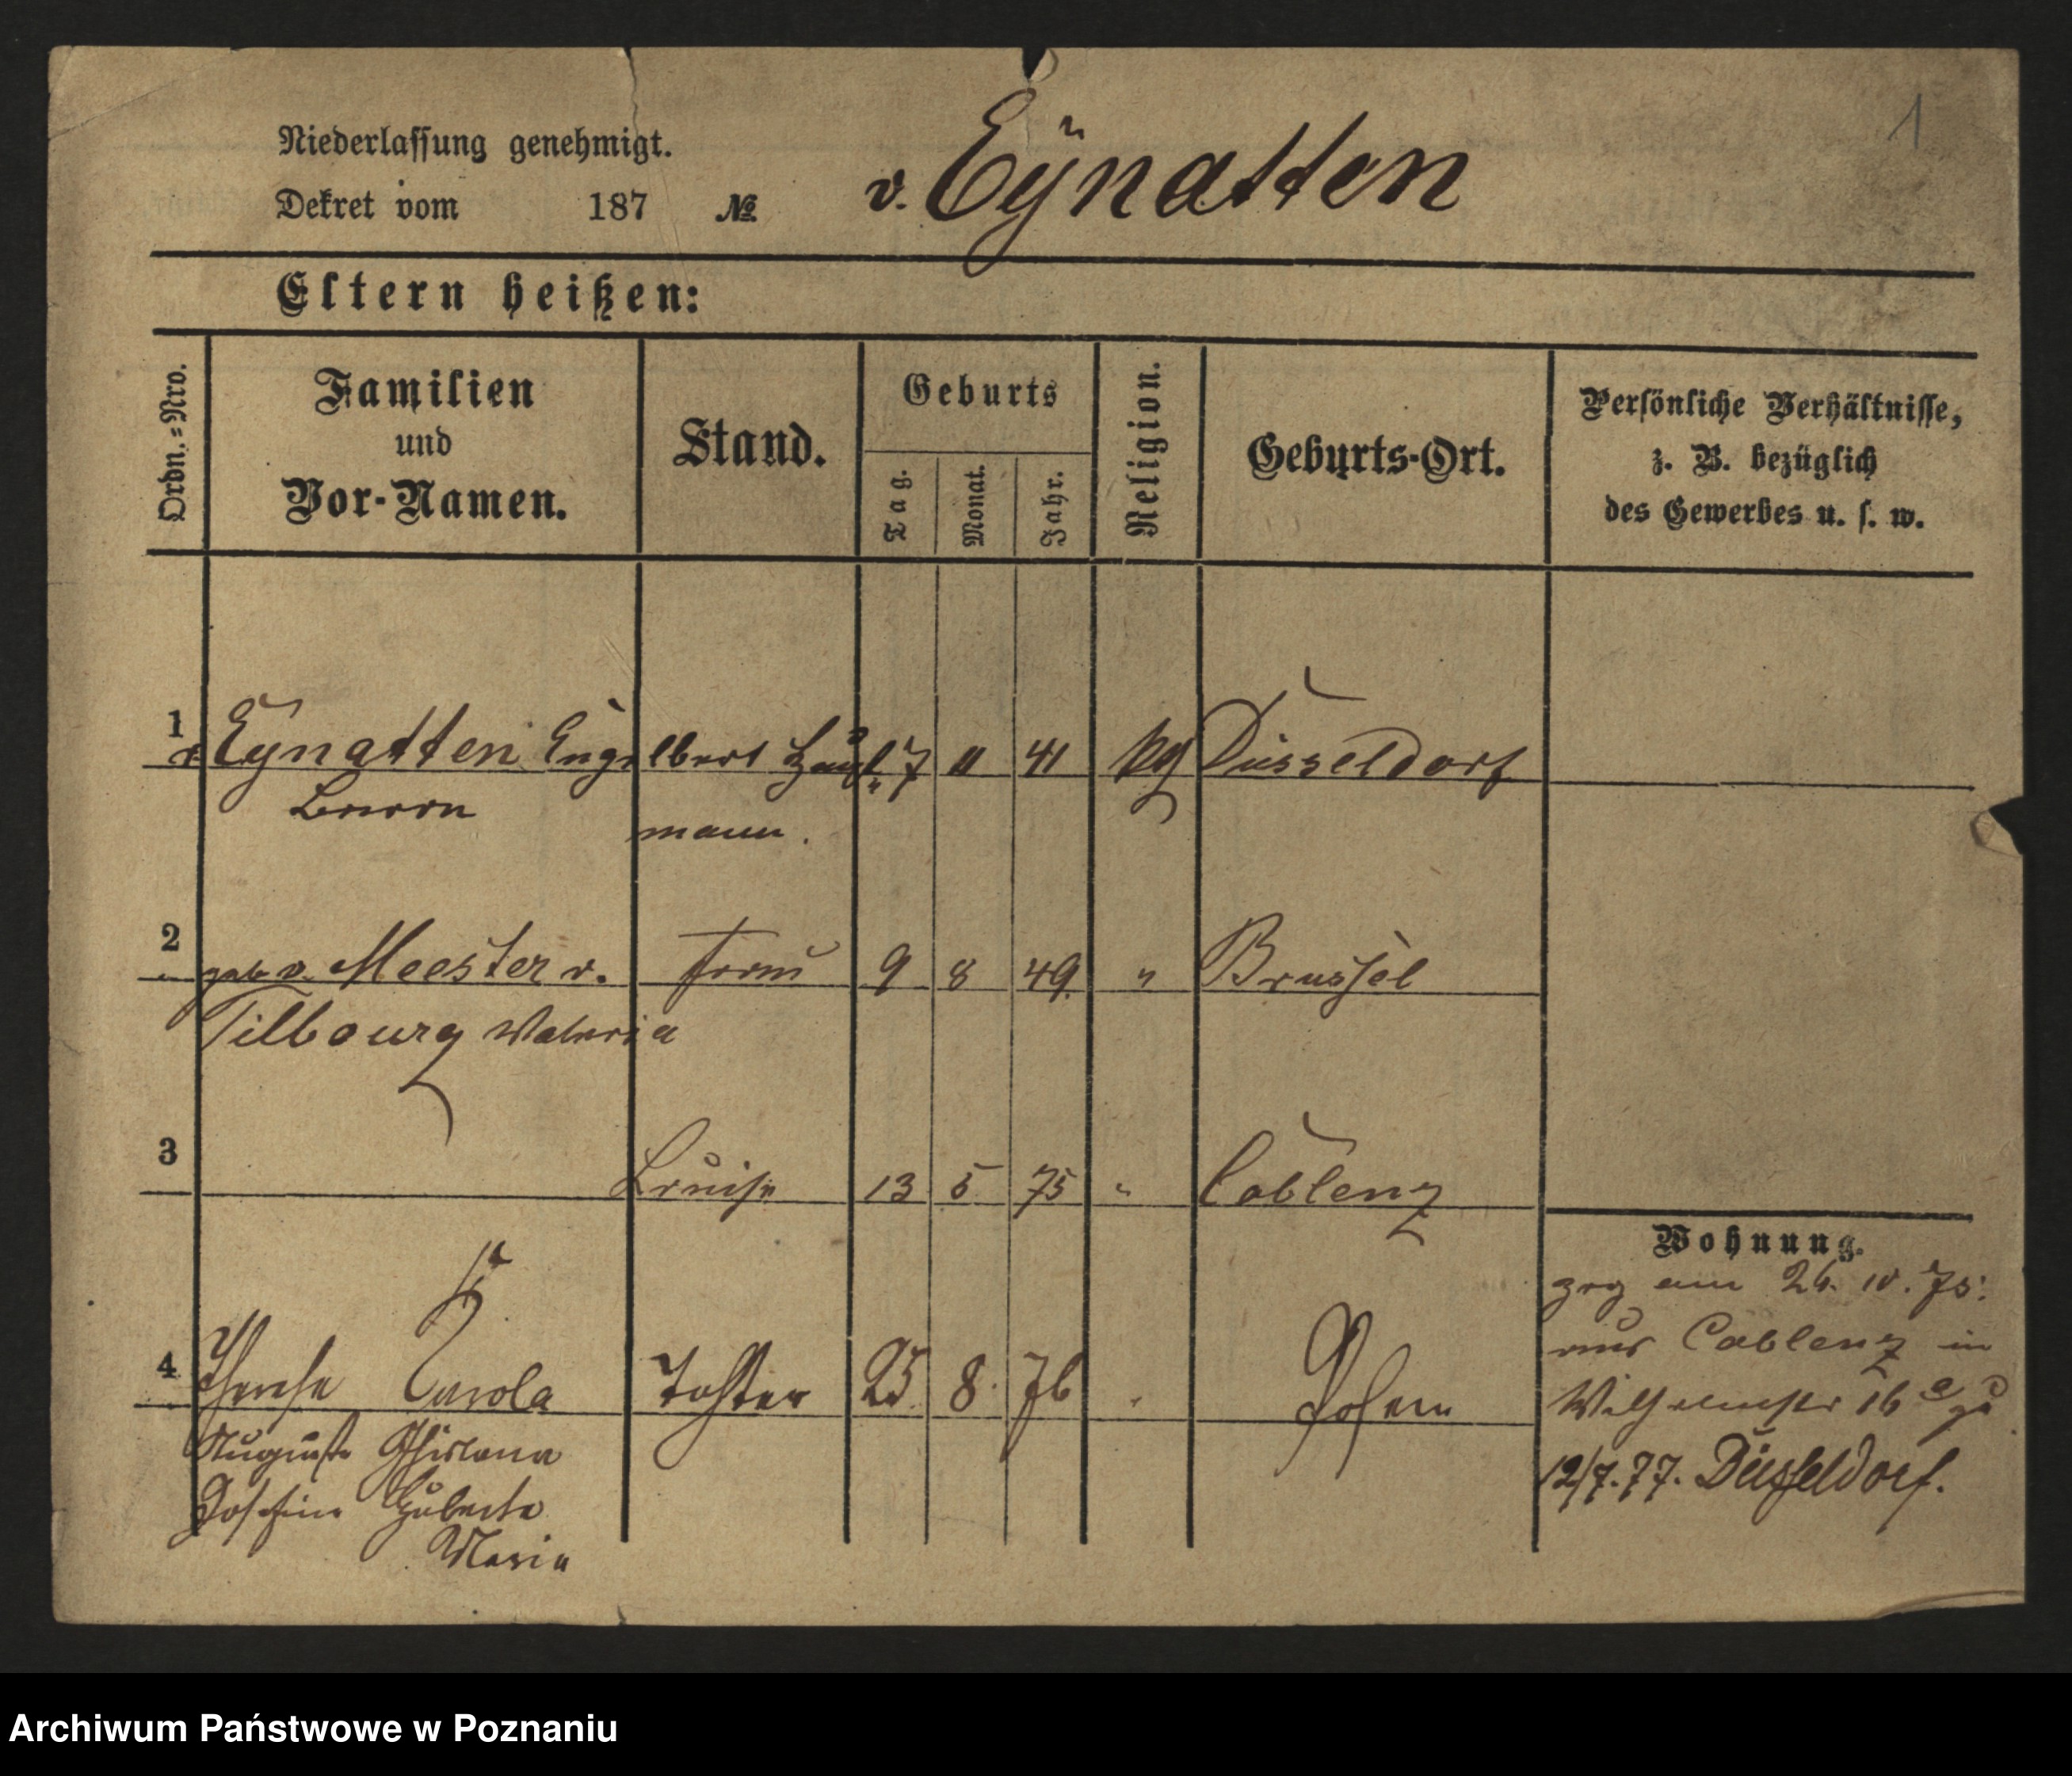 1
Niederlassung genehmigt.
Dekret vom 187 № v. Eÿnatten
Eltern heißen:
Ordn.=Nro.
Familien
und
Vor-Namen.
Stand.
Geburts
Tag.
Monat.
Jahr.
Religion.
Geburts-Ort.
Persönliche Verhältnisse,
z. B. bezüglich
des Gewerbes u. s. w.
1 v. Eynatten Engelbert Haupt- 7 11 41 Düsseldorf
Baron mann.
2 geb. v. Meester v. Frau 9 8 49. " Brussel
Tilbourg Valeria
3 Louise 13 5 75 " Coblenz
Wohnung.
zog am 26. 10. 75.
aus Coblenz in
4 Therese Carola Tochter 25 8. 76 " Posen
Wilhelmstr 16
Auguste Ghislana
12/7. 77. Düsseldorf.
Josephine Huberta
Maria
Archiwum Państwowe w Poznaniu